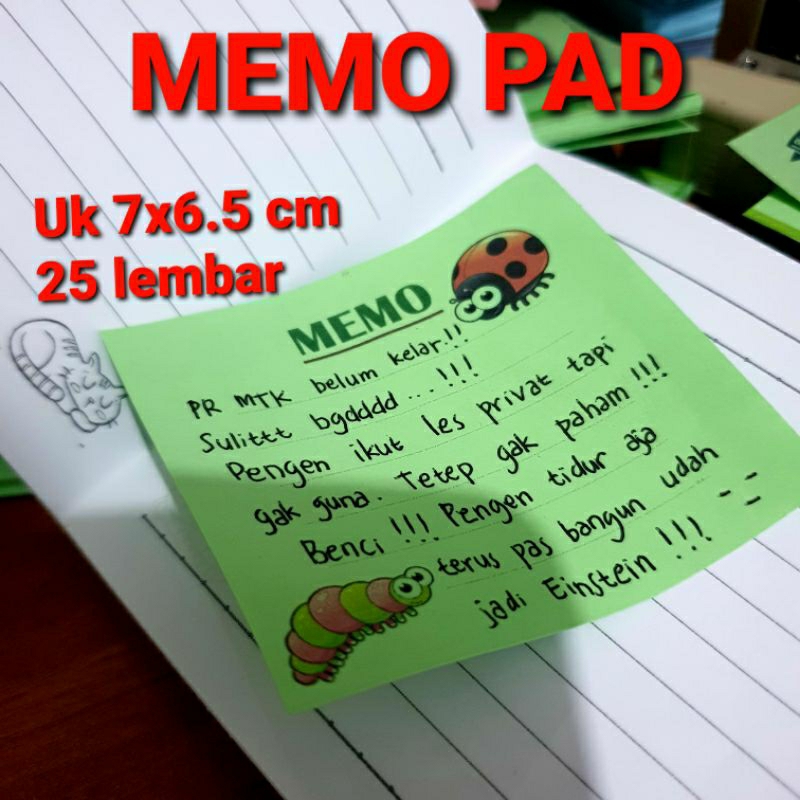 MEMO PAD
Uk 7x6.5 cm
25 lembar
MEMO
PR MTK belum kelar!!
Sulittt bgdddd...!!!
Pengen ikut les privat tapi
gak guna. Tetep gak paham!!!
Benci!!! Pengen tidur aja
terus pas bangun udah
jadi Einstein!!! -_-